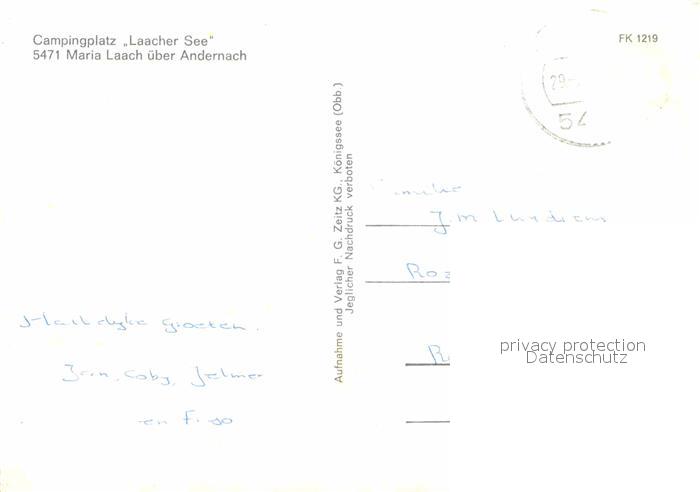 Campingplatz „Laacher See"
5471 Maria Laach über Andernach
FK 1219
29-
54
Aufnahme und Verlag F. G. Zeitz KG., Königssee (Obb.)
Jeglicher Nachdruck verboten
J. M.
Roz
R
Hartelyke Groeten.
Jan, Coby, Jelmer
en
privacy protection
Datenschutz